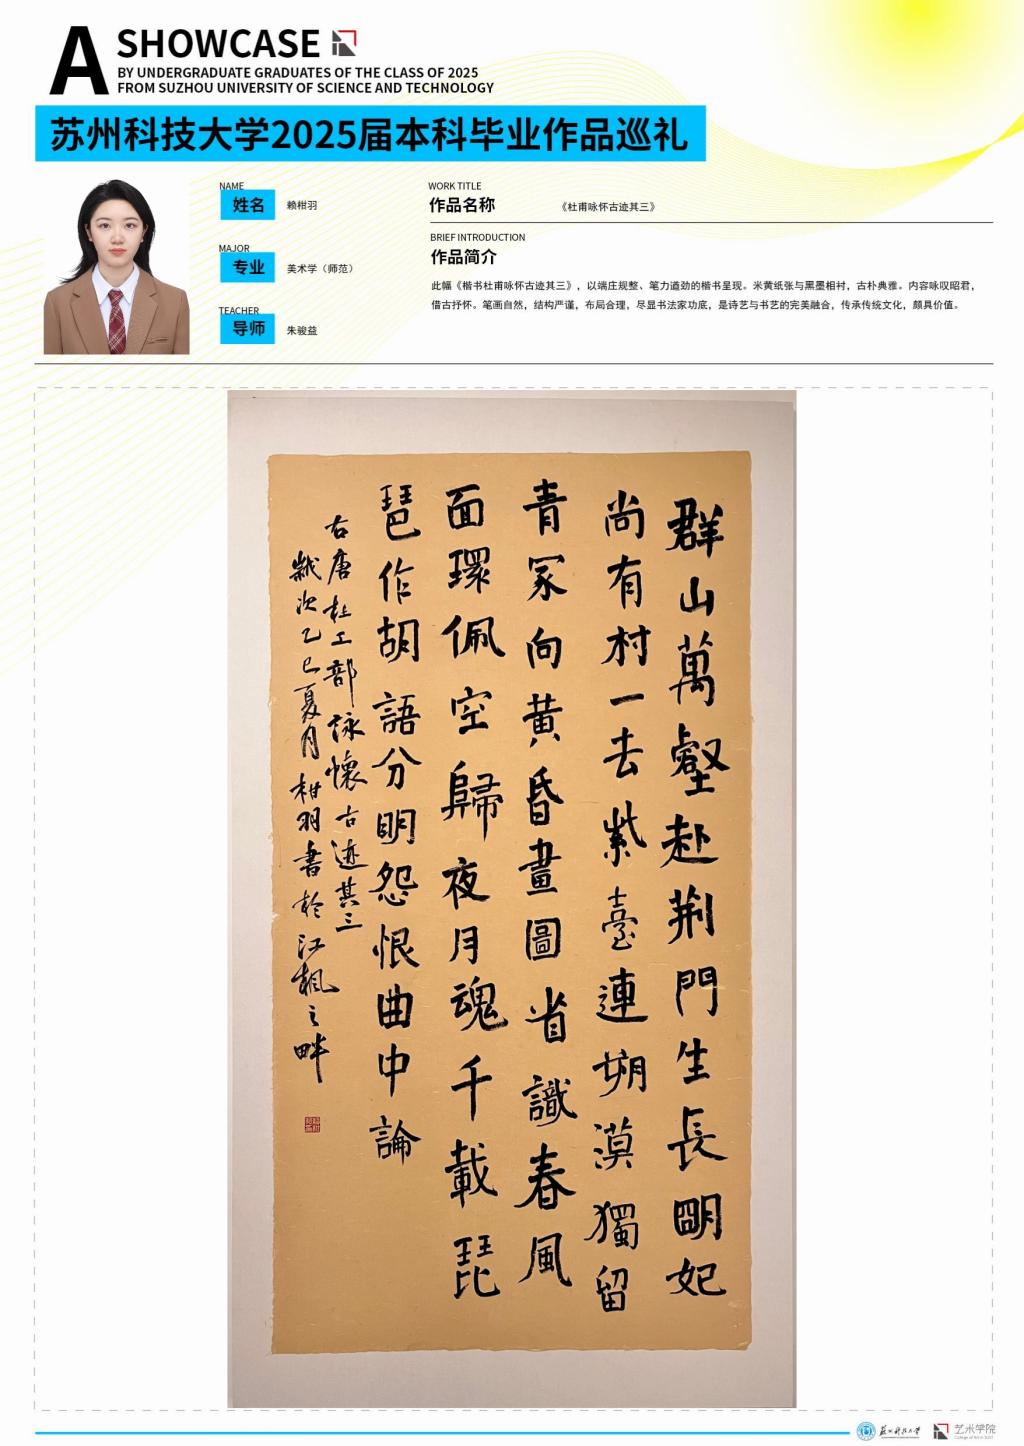 A SHOWCASE
BY UNDERGRADUATE GRADUATES OF THE CLASS OF 2025
FROM SUZHOU UNIVERSITY OF SCIENCE AND TECHNOLOGY
苏州科技大学2025届本科毕业作品巡礼
NAME
姓名 赖柑羽
MAJOR
专业 美术学（师范）
TEACHER
导师 朱骏益
WORK TITLE
作品名称 《杜甫咏怀古迹其三》
BRIEF INTRODUCTION
作品简介
此幅《楷书杜甫咏怀古迹其三》，以端庄规整、笔力遒劲的楷书呈现。米黄纸张与黑墨相衬，古朴典雅。内容咏叹昭君，
借古抒怀。笔画自然，结构严谨，布局合理，尽显书法家功底，是诗艺与书艺的完美融合，传承传统文化，颇具价值。
群山萬壑赴荆門生長明妃
尚有村一去紫臺連朔漠獨留
青冢向黄昏畫圖省識春風
面環佩空歸夜月魂千載琵
琶作胡語分明怨恨曲中論
右唐杜工部詠懷古迹其三
歲次乙巳夏月柑羽書於江楓之畔
苏州科技大学
艺术学院